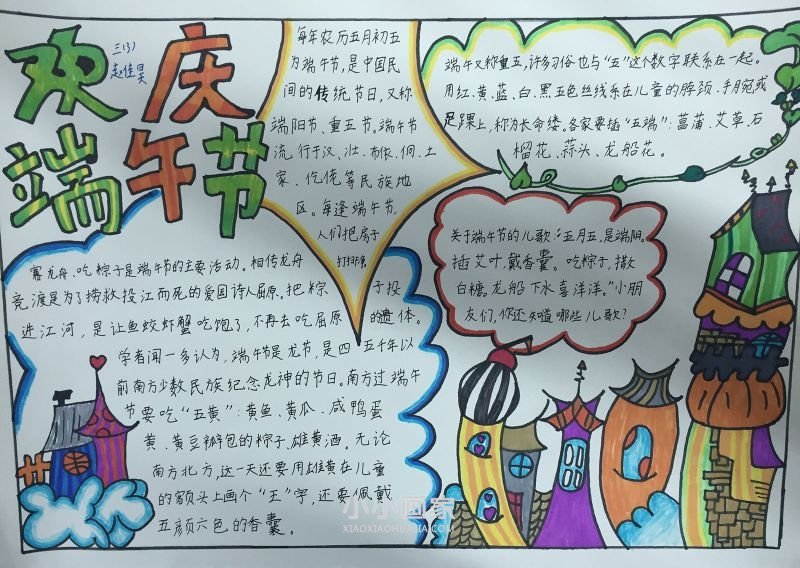 欢庆
端午节
三(3)
赵佳昊
每年农历五月初五
为端午节,是中国民
间的传统节日,又称
端阳节、重五节。端午节
流行于汉、壮、布依、侗、土
家、仡佬等民族地
区。每逢端午节,
人们把房子
打扫干净
端午又称重五,许多习俗也与“五”这个数字联系在一起。
用红、黄、蓝、白、黑五色丝线系在儿童的脖颈、手腕或
足踝上,称为长命缕。各家要插“五端”:菖蒲、艾草、石
榴花、蒜头、龙船花。
关于端午节的儿歌:“五月五,是端阳。
插艾叶,戴香囊。吃粽子,撒
白糖。龙船下水喜洋洋。”小朋
友们,你还知道哪些儿歌?
赛龙舟、吃粽子是端午节的主要活动。相传龙舟
竞渡是为了捞救投江而死的爱国诗人屈原。把粽子投
进江河,是让鱼蛟虾蟹吃饱了,不再去吃屈原的遗体。
学者闻一多认为,端午节是龙节,是四五千年以
前南方少数民族纪念龙神的节日。南方过端午
节要吃“五黄”:黄鱼、黄瓜、咸鸭蛋
黄、黄豆瓣包的粽子、雄黄酒。无论
南方北方,这一天还要用雄黄在儿童
的额头上画个“王”字,还要佩戴
五颜六色的香囊。
小小画家
XIAOXIAOHUAJIA.COM